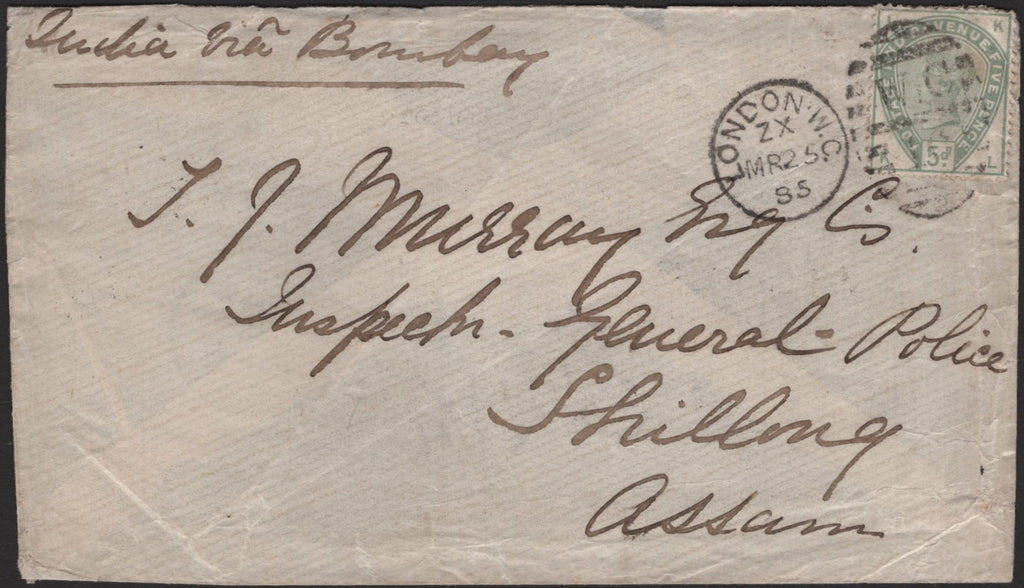 India viâ Bombay
LONDON·W.C
ZX
MR 25
85
POSTAGE & REVENUE FIVE PENCE
L K
K L
5d
T. J. Murray Esq C.S.
Inspectr - General - Police
Shillong
Assam